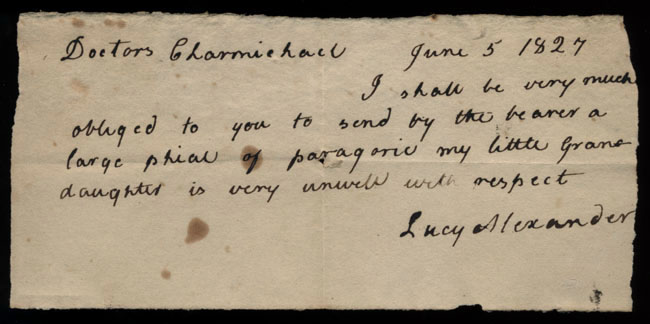 Doctors Charmichael June 5 1827
I shall be very much
obliged to you to send by the bearer a
large phial of paragoric my little Grand
daughter is very unwell with respect
Lucy Alexander